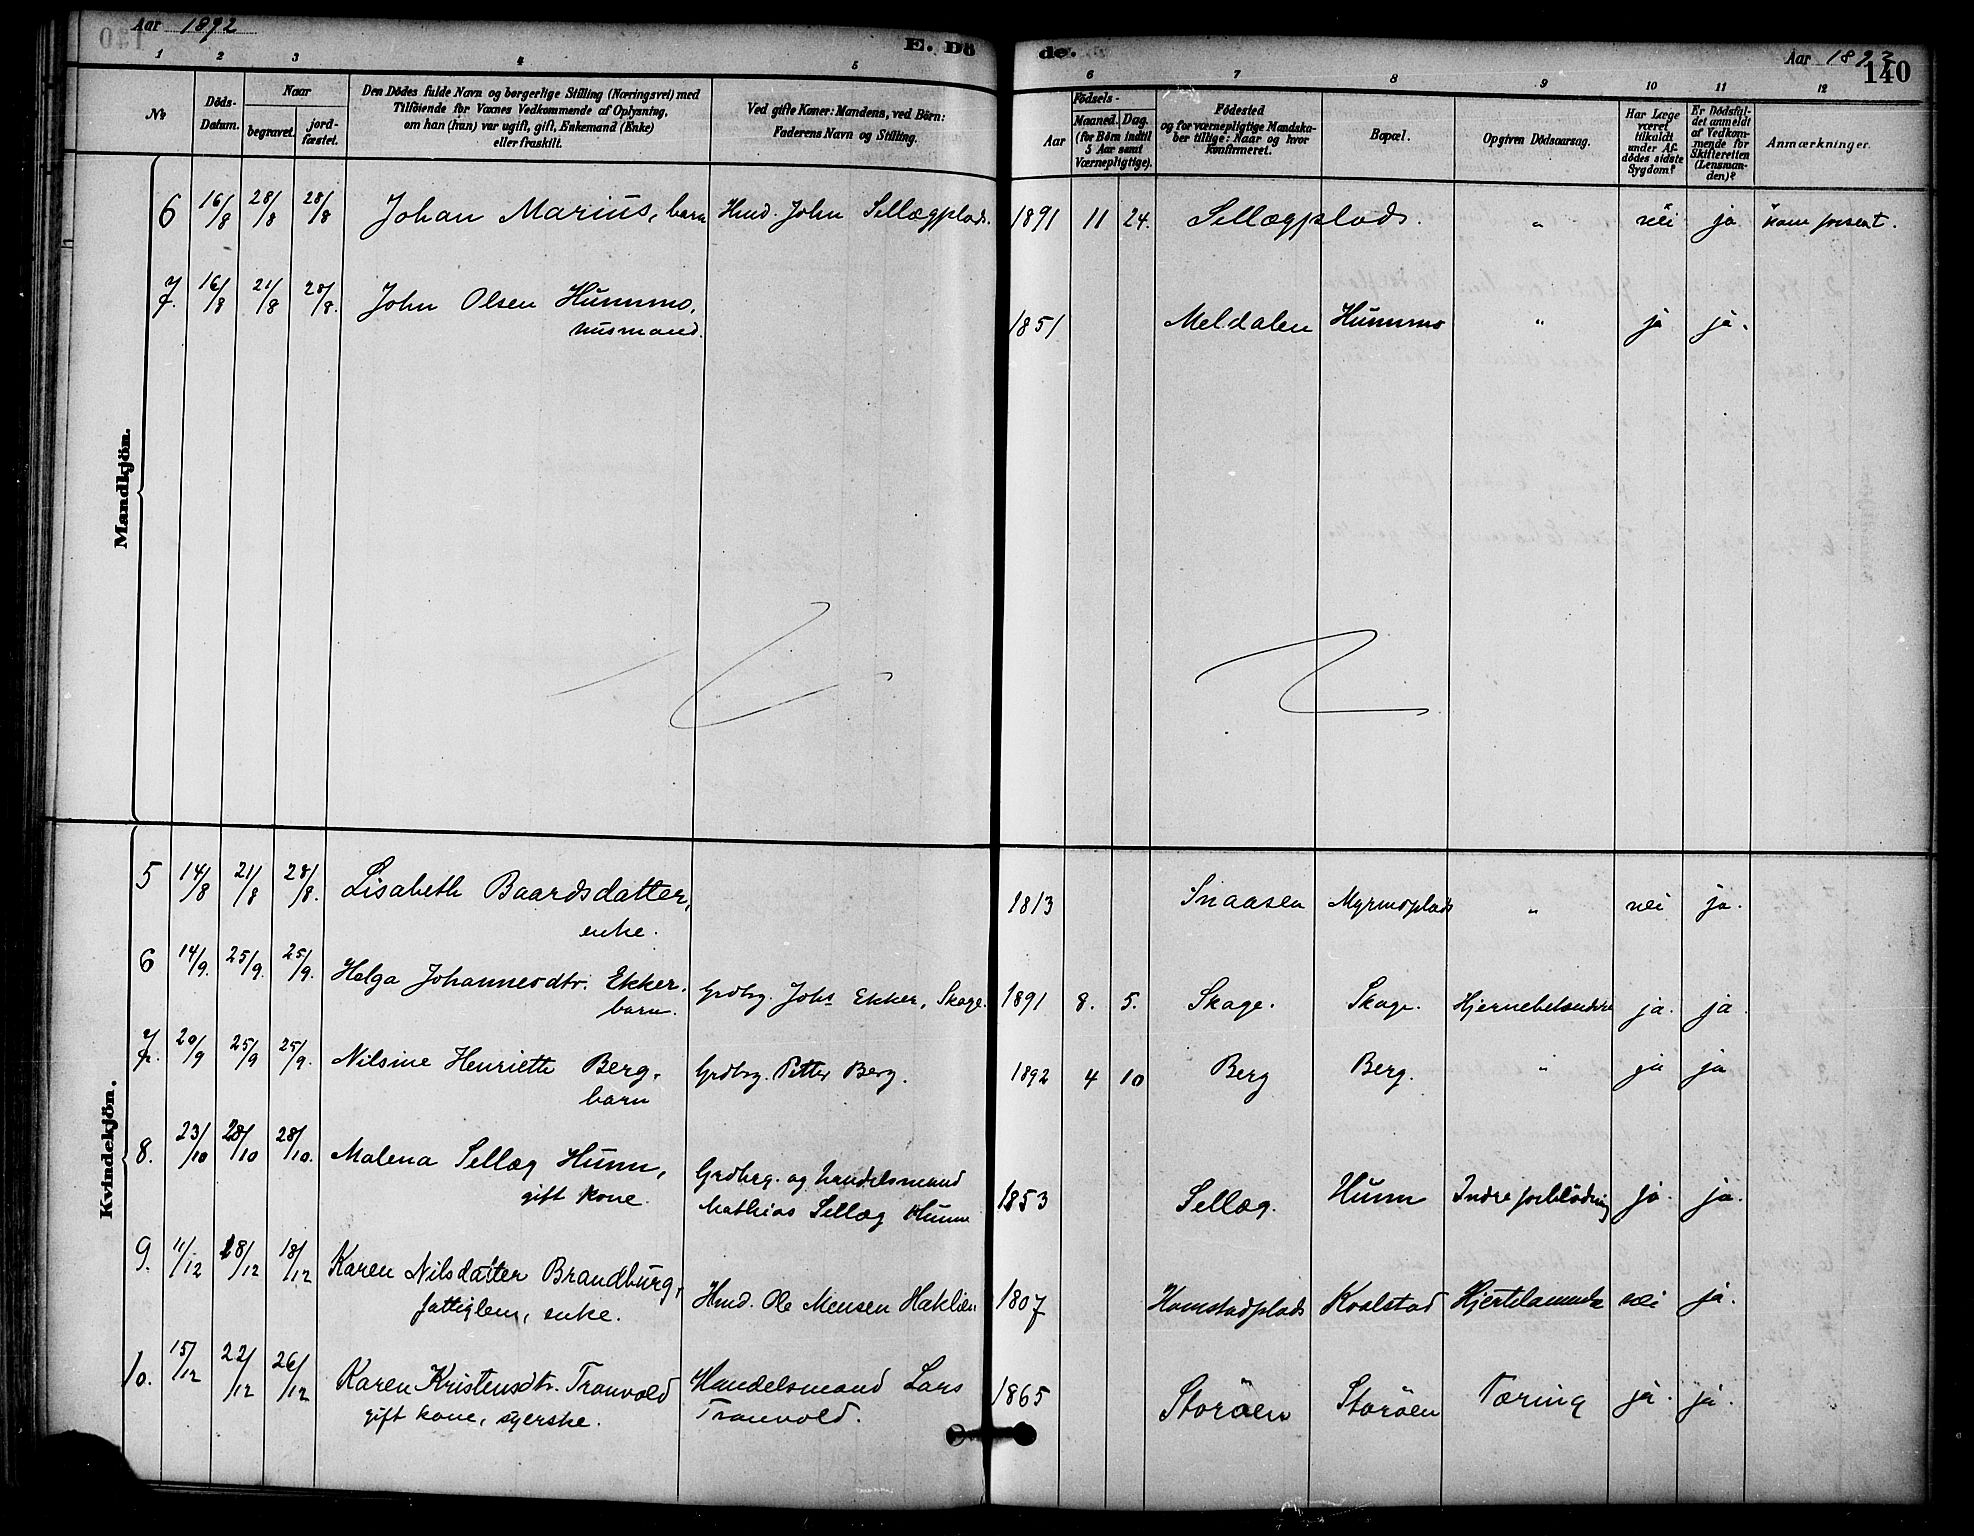 Aar 1892
E. Dö de.
Aar 1892
140
1 2 3 4 5 6 7 8 9 10 11 12
No
Döds-Datum.
Naar
begravet. jord-fæstet.
Den Dödes fulde Navn og borgerlige Stilling (Næringsvei) med
Tilföiende for Voxnes Vedkommende af Oplysning,
om han (hun) var ugift, gift, Enkemand (Enke)
eller fraskilt.
Ved gifte Koner: Mandens, ved Börn:
Faderens Navn og Stilling.
Födsels-
Aar Maaned. Dag.
(for Börn indtil
5 Aar samt
Værnepligtige).
Födested
og for værnepligtige Mandska-
ber tillige: Naar og hvor
konfirmeret.
Bopæl.
Opgiven Dödsaarsag.
Har Læge
været
tilkaldt
under Af-
dödes sidste
Sygdom?
Er Dödsfal-
det anmeldt
af Vedkom-
mende for
Skifteretten
(Lensman-
den)?
Anmærkninger.
Mandkjön.
6 16/8 28/8 28/8 Johan Marius, barn Hmd. John Sellægplads. 1891 11 24. Sellægplads. " nei ja
7. 16/8 21/8 28/8. John Olsen Hummo, 1851 Meldalen Hummo " ja ja.
husmand.
Kvindekjön.
5 14/8 21/8 28/8. Lisabeth Baardsdatter, 1813 Snaasen Myrmoplads " nei ja.
enke.
6 14/9. 25/9. 25/9. Helga Johannesdtr. Ekker. Grdbrg. Johs Ekker, Skage. 1891 8. 5. Skage. Skage. ja. ja
barn.
7. 20/9 25/9 25/9. Nilsine Henriette Berg. Grdbrg. Petter Berg. 1892 4 10 Berg Berg. " ja ja
barn
8. 23/10 28/10 28/10. Malena Sellæg Hunn, Grdbrg. og handelsmand 1853 Sellæg. Hunn Indre forblödning ja. ja.
gift kone. Mathias Sellæg Hunn
9. 11/12 18/12 18/12 Karen Nilsdatter Brandburg, Hmd. Ole Mensen Haklien 1807 Homstadplads Kvalstad nei ja.
fattiglem, enke.
10. 15/12 22/12 26/12 Karen Kristensdtr. Tranvold Handelsmand Lars 1865 Storöen Storöen Tæring ja. ja.
gift kone, syerske. Tranvold.